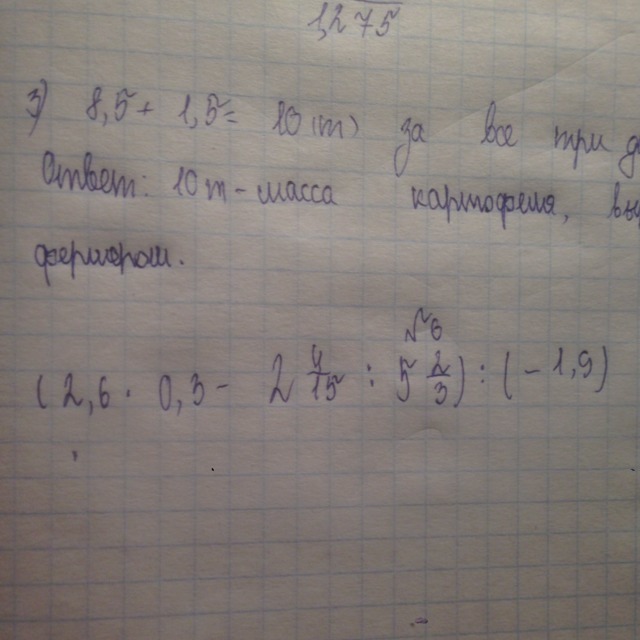 1,275
3) 8,5 + 1,5 = 10 (т) за все три
Ответ: 10 т - масса картофеля,
фермером.
№6
(2,6 · 0,3 - 2 4/15 : 5 2/3) : (-1,9)